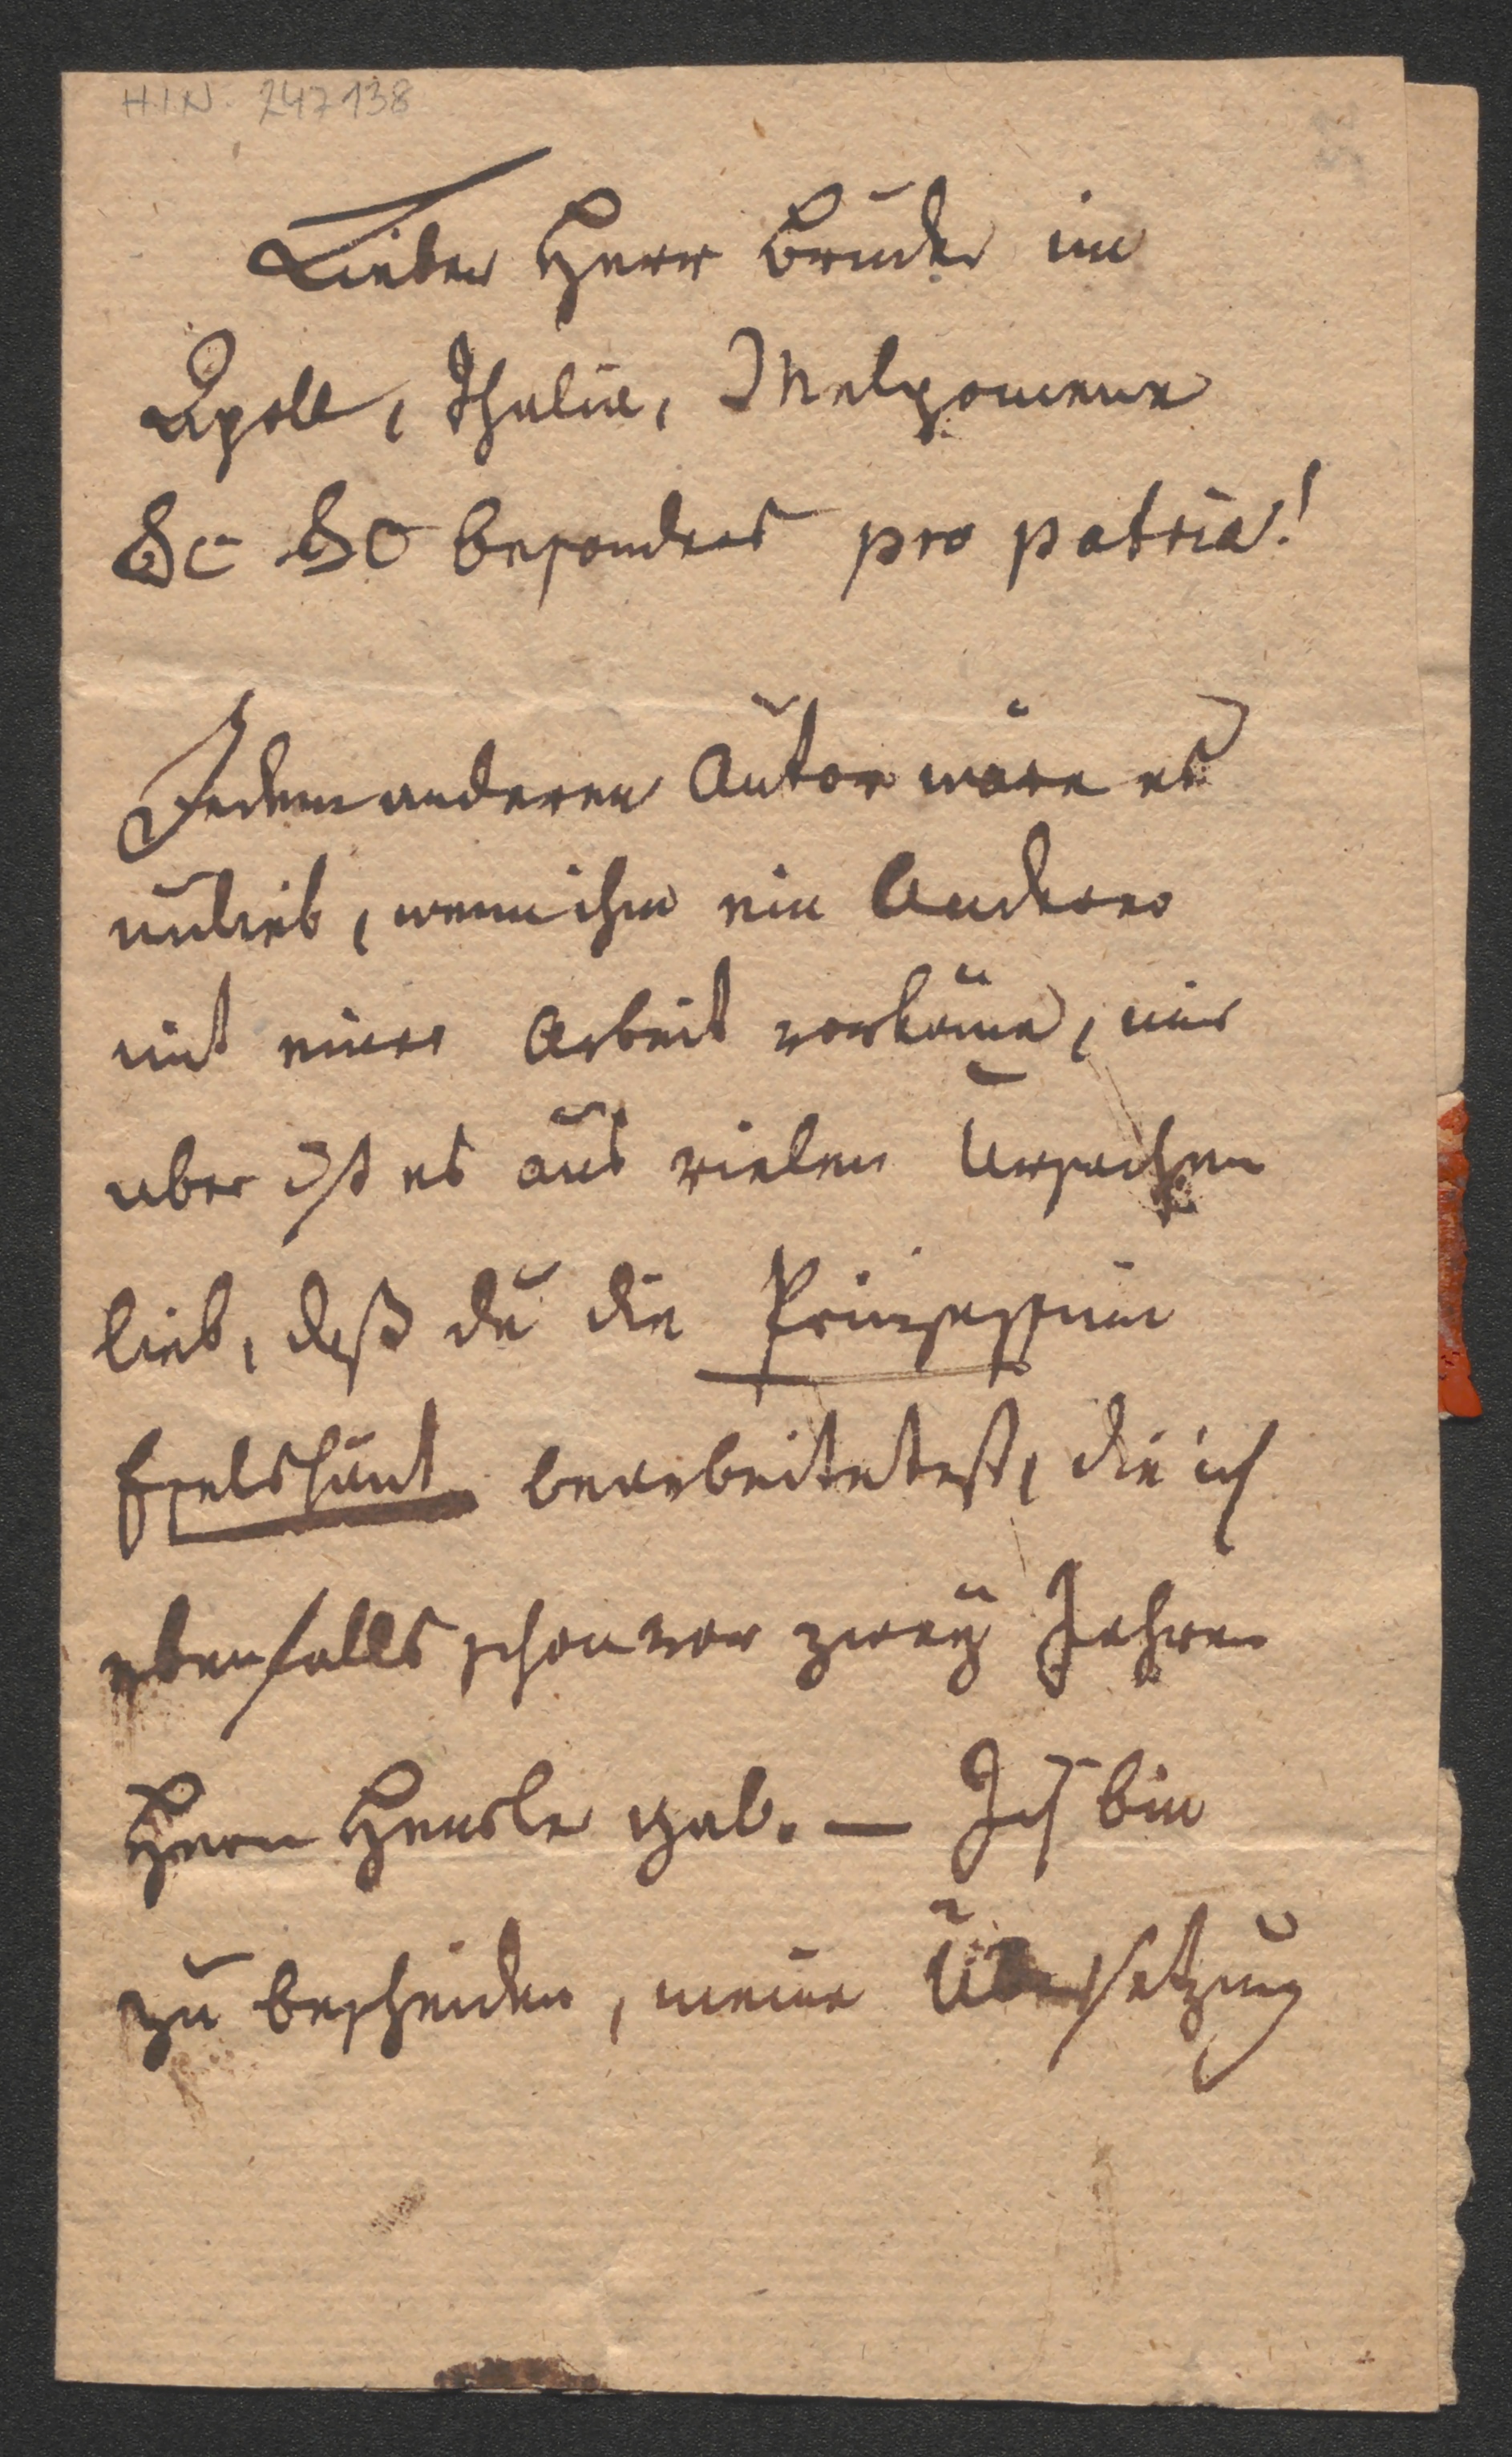 H.I.N. 247138
Lieber Herr Bruder im
Apoll, Thalia, Melpomene
&c &c besonders pro patria!
Jedem anderen Autor wäre es
unlieb, wenn ihm ein Anderer
mit einer Arbeit vorkäme, mir
aber ist es aus vielen Ursachen
lieb, daß du die Prinzessinn
Eselshaut bearbeitetest, die ich
ebenfalls schon vor zwey Jahren
Herrn Hensler gab. — Ich bin
zu bescheiden, meine Übersetzung